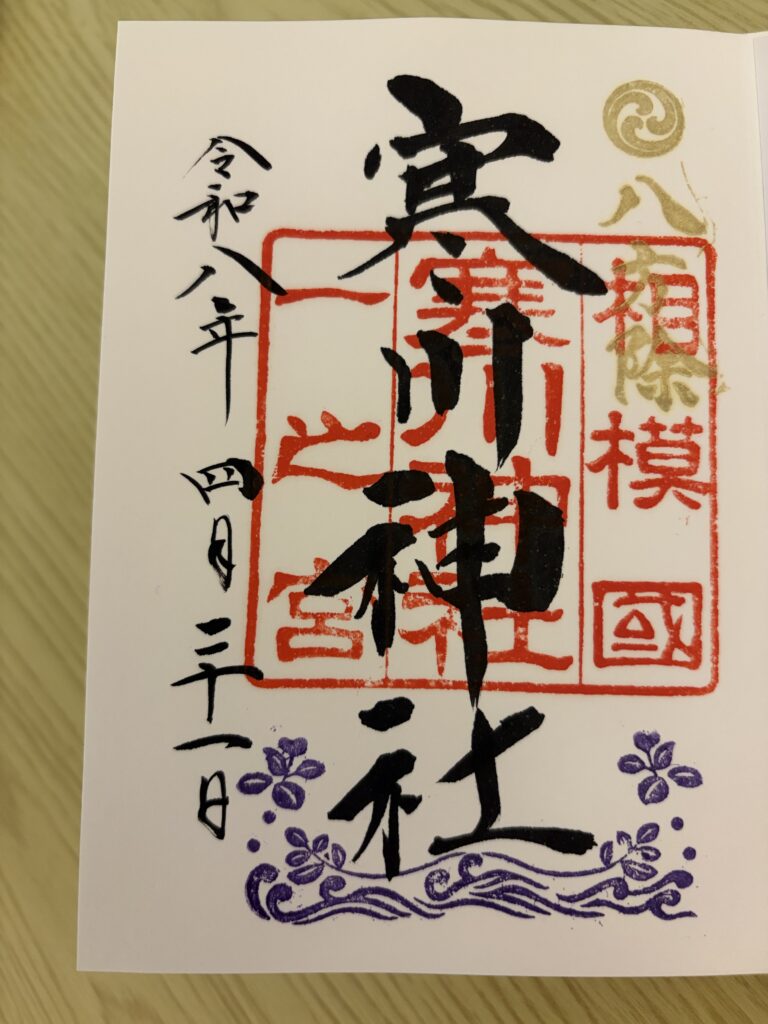 八方除
相模國
寒川神社
寒川神社
一之宮
令和八年 四月 二十一日